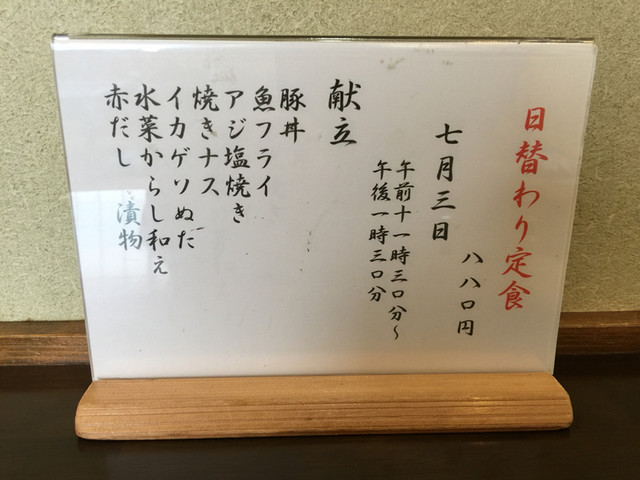 日替わり定食
八八〇円
七月三日
午前十一時三〇分〜
午後一時三〇分
献立
豚丼
魚フライ
アジ塩焼き
焼きナス
イカゲソぬた
水菜からし和え
赤だし 漬物